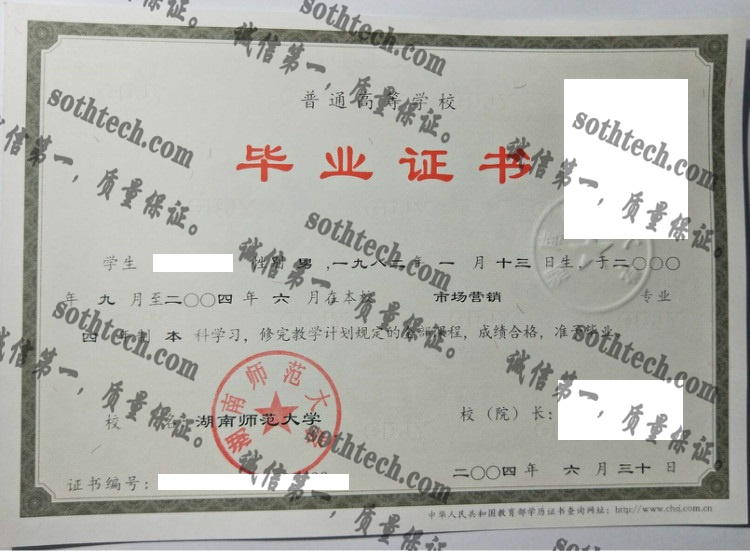 普通高等学校
毕业证书
学生 性别 男 ,一九八二年 一 月 十三 日生，于二〇〇〇
年 九 月至二〇〇四年 六 月在本校 市场营销 专业
四 年制 本 科学习，修完教学计划规定的全部课程，成绩合格，准予毕业。
校 名 湖南师范大学 校（院）长：
湖南师范大学
证书编号：
二〇〇四年 六 月三十日
中华人民共和国教育部学历证书查询网址：http://www.chsi.com.cn
sothtech.com
诚信第一，质量保证。
sothtech.com
诚信第一，质量保证。
sothtech.com
诚信第一，质量保证。
sothtech.com
诚信第一，质量保证。
sothtech.com
诚信第一，质量保证。
sothtech.com
诚信第一，质量保证。
sothtech.com
诚信第一，质量保证。